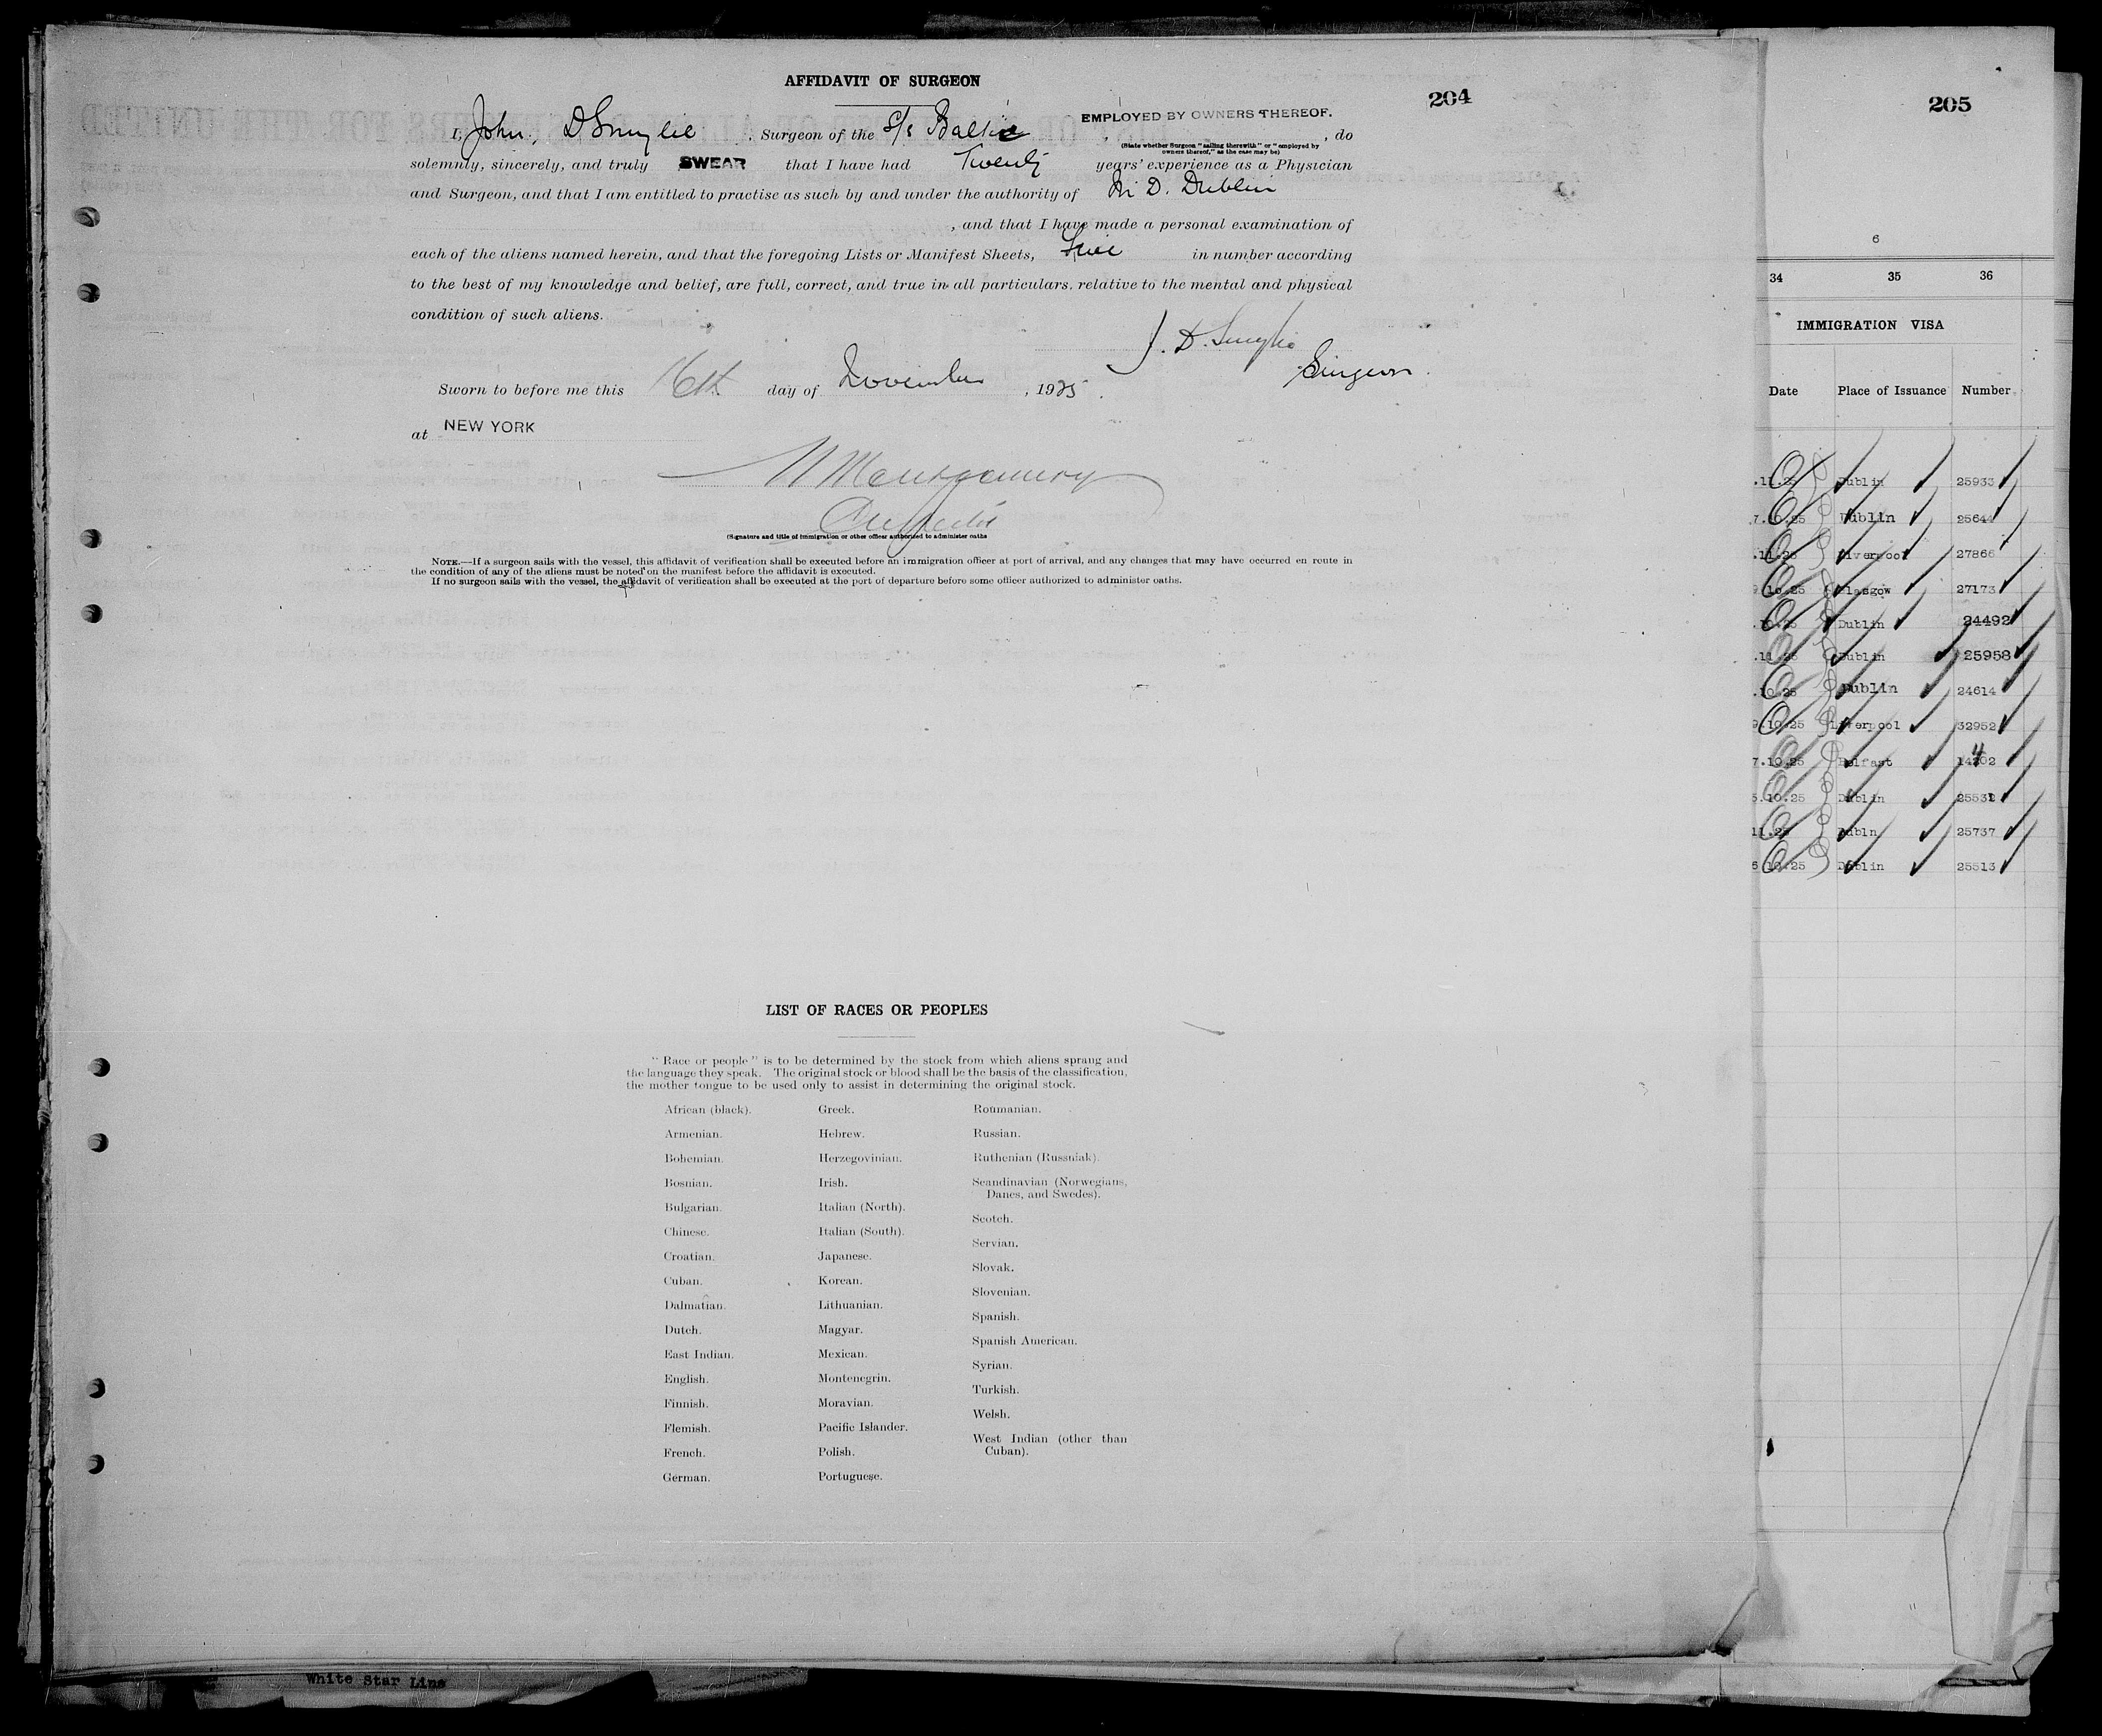 AFFIDAVIT OF SURGEON
204
I, John. D Smylie , Surgeon of the S/s Baltic , EMPLOYED BY OWNERS THEREOF. , do
(State whether Surgeon "sailing therewith" or "employed by
owners thereof," as the case may be)
solemnly, sincerely, and truly SWEAR that I have had Twenty years' experience as a Physician
and Surgeon, and that I am entitled to practise as such by and under the authority of D. Dublin
, and that I have made a personal examination of
each of the aliens named herein, and that the foregoing Lists or Manifest Sheets, in number according
to the best of my knowledge and belief, are full, correct, and true in all particulars. relative to the mental and physical
condition of such aliens.
J. D. Smylie
Surgeon.
Sworn to before me this 16th day of November , 1925.
at NEW YORK
Montgomery
(Signature and title of immigration or other officer authorized to administer oaths
NOTE.—If a surgeon sails with the vessel, this affidavit of verification shall be executed before an immigration officer at port of arrival, and any changes that may have occurred en route in
the condition of any of the aliens must be noted on the manifest before the affidavit is executed.
If no surgeon sails with the vessel, the affidavit of verification shall be executed at the port of departure before some officer authorized to administer oaths.
LIST OF RACES OR PEOPLES
"Race or people" is to be determined by the stock from which aliens sprang and
the language they speak. The original stock or blood shall be the basis of the classification,
the mother tongue to be used only to assist in determining the original stock.
African (black).
Armenian.
Bohemian.
Bosnian.
Bulgarian.
Chinese.
Croatian.
Cuban.
Dalmatian.
Dutch.
East Indian.
English.
Finnish.
Flemish.
French.
German.
Greek.
Hebrew.
Herzegovinian.
Irish.
Italian (North).
Italian (South).
Japanese.
Korean.
Lithuanian.
Magyar.
Mexican.
Montenegrin.
Moravian.
Pacific Islander.
Polish.
Portuguese.
Roumanian.
Russian.
Ruthenian (Russniak).
Scandinavian (Norwegians,
Danes, and Swedes).
Scotch.
Servian.
Slovak.
Slovenian.
Spanish.
Spanish American.
Syrian.
Turkish.
Welsh.
West Indian (other than
Cuban).
White Star Line
205
6
34 35 36
IMMIGRATION VISA
Date Place of Issuance Number
.11.25 Dublin 25933
7.10.25 Dublin 25644
.11.25 Liverpool 27866
9.10.25 Glasgow 27173
.10.25 Dublin 24492
.11.25 Dublin 25958
.10.25 Dublin 24614
9.10.25 Liverpool 32952
7.10.25 Belfast
5.10.25 Dublin 25531
11.25 Dubln 25737
6.10.25 Dublin 25513